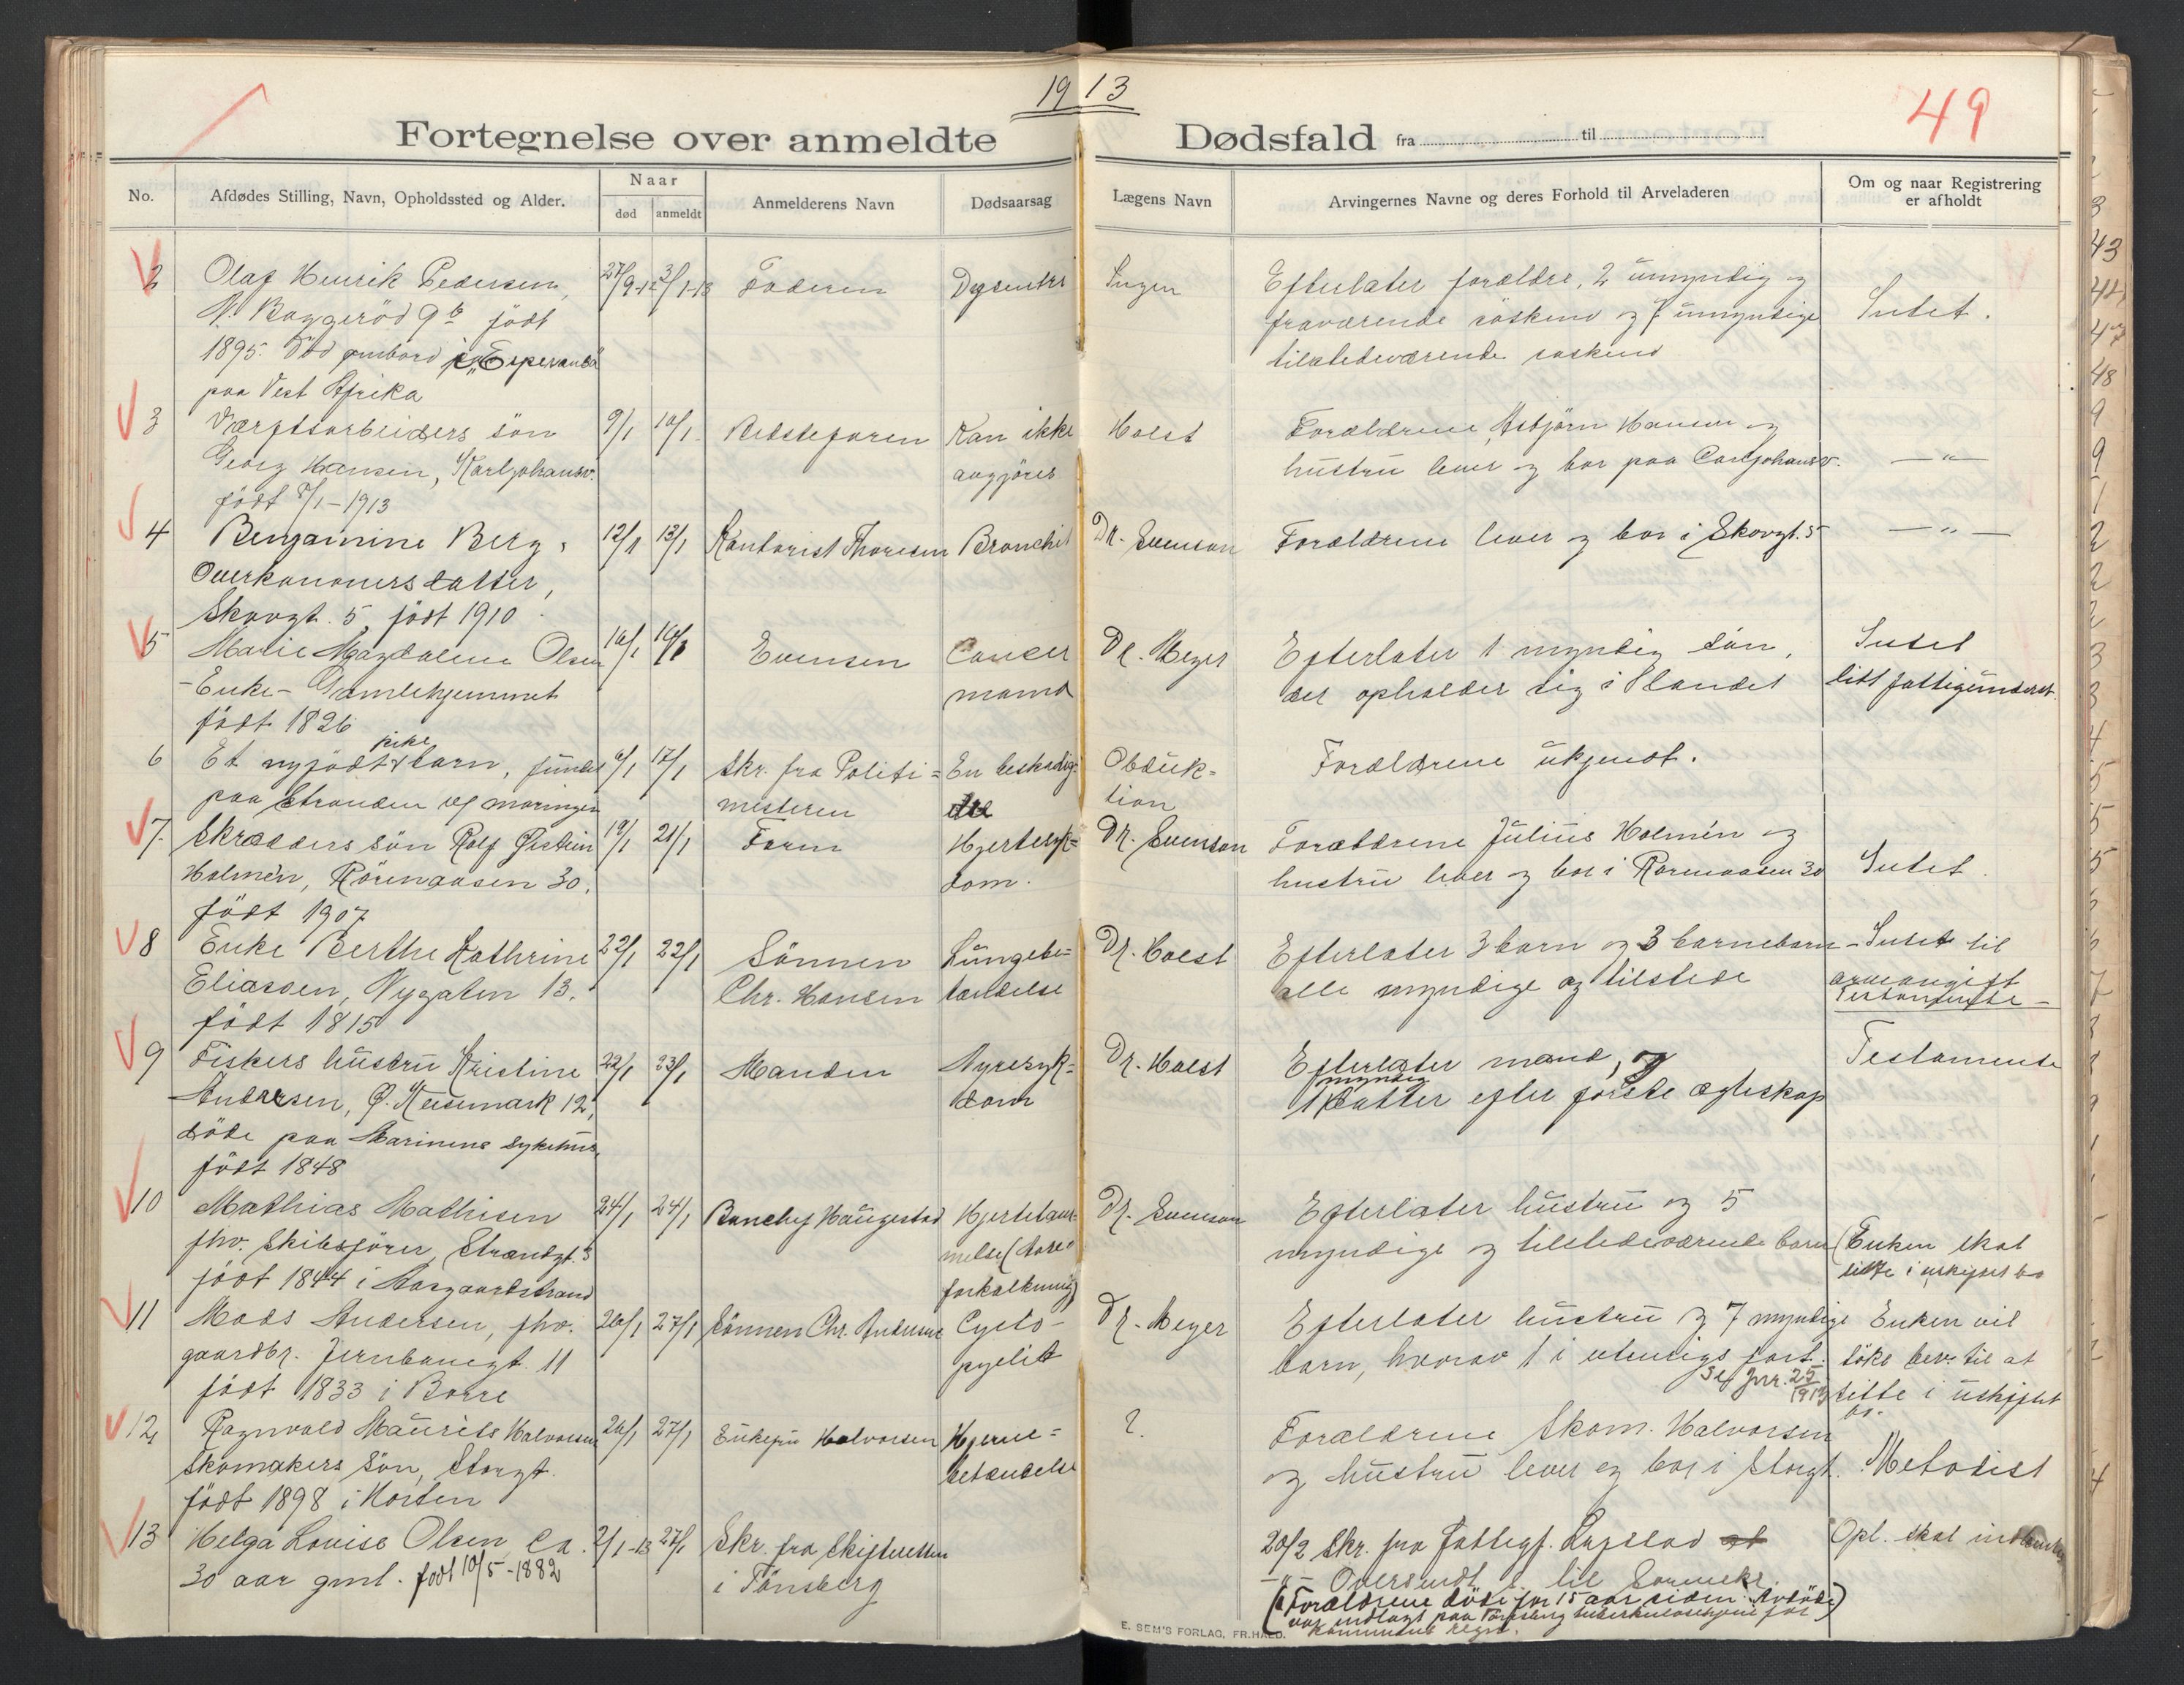 1913
49
Fortegnelse over anmeldte Dødsfald fra til
No.
Afdødes Stilling, Navn, Opholdssted og Alder.
Naar
død
anmeldt
Anmelderens Navn
Dødsaarsag
Lægens Navn
Arvingernes Navne og deres Forhold til Arveladeren
Om og naar Registrering
er afholdt
2 Olaf Henrik Pedersen, 27/9-12 3/1-13 Faderen Dysentri Ingen Efterlater forældre, 2 umyndig og
N. Baggerød 9b født fraværende søskend og 7 umyndige Intet.
1895. Død ombord i "Esperanca" tilstedeværende søskend
paa Vest Afrika
3 Værftsarbeiders søn 9/1 10/1 Bedstefaren Kan ikke Holst Forældrene Asbjørn Hansen og
Georg Hansen, Karljohansv. angjøres hustru lever og bor paa Carljohansv. — " —
født 8/1-1913
4 Benjamine Berg, 12/1 13/1 Kontorist Thoresen Bronchit Dr. Evenson Forældrene lever og bor i Skovgt. 5 — " —
Overkanoners datter,
Skovgt. 5, født 1910
5 Marie Magdalene Olsen 16/1 16/1 Evensen Cancer Dr. Meyer Efterlater 1 myndig søn, Intet
- Enke - Gamlehjemmet mama der opholder sig i Utlandet litt fattigunderst.
født 1826
6 Et nyfødt pike barn, fundet 6/1 17/1 Skr. fra Politi= En beskadig= Obduk= Forældrene ukjendt.
paa Stranden ved marinen mesteren else tion
7. Skrædders søn Rolf Øistein 19/1 21/1 Faren Hjertesyk= Dr. Evenson Forældrene Julius Holmèn og
Holmèn, Rørenaasen 30, dom. hustru lever og bor i Rørenaasen 30 Intet.
født 1907
8 Enke Berthe Kathrine 22/1 22/1 Sønnen Lungebe= Dr. Holst Efterlater 3 barn og 3 barnebarn - Intet til
Eliassen, Nygaten 13. Chr. Hansen tændelse alle myndige og tilstede arveavgift
født 1815 Testamente -
9 Fiskers hustru Kristine 22/1 23/1 Manden Nyresyk= Dr. Holst Efterlater mand, og Testamente
Andersen, Ø. Keisemark 12, dom 1 myndig datter efter første ægteskap
døde paa Marinens sykehus,
født 1848
10 Mathias Mathisen 24/1 24/1 Banchef Haugestad Hjertelam= Dr. Evenson Efterlater hustru og 5
fhv. Skibsfører, Strandgt. 3 melse (Aare= myndige og tilstedeværende barn (Enken skal
født 1844 i Aasgaardstrand forkalkning) sitte i uskiftet bo
11 Mads Andersen, fhv. 26/1 27/1 Sønnen Chr. Andersen Cysto- Dr. Meyer Efterlater hustru og 7 myndige Enken vil
gaardbr. Jernbanegt. 11 pyelit barn, hvorav 1 i utenrigs fart. søke bev. til at
født 1833 i Borre Se jnr. 25/1913 sitte i uskiftet
bo.
12 Ragnvald Maurits Halvorsen 26/1 27/1 Enkefru Halvorsen Hjerne= ? Forældrene Skom. Halvorsen
Skomakers søn, Storgt. betændelse og hustru lever og bor i Storgt. Metodist
født 1898 i Horten
13 Helga Louise Olsen ca. 2/1-13 27/1 Skr. fra Skifteretten 20/2 Skr. fra Fattigf. Opl. skal
30 aar gml. født 10/5-1882 i Tønsberg -"- Oversendt til
(Forældrene døde for 15 aar siden. Avdøde
var indlagt paa Tønsberg tuberkulosehjem for
kommunens regn.)
E. SEM'S FORLAG, FR.HALD.
3
43
44
47
48
9
9
1
2
2
2
3
3
4
5
5
5
6
7
8
8
9
1
1
2
4